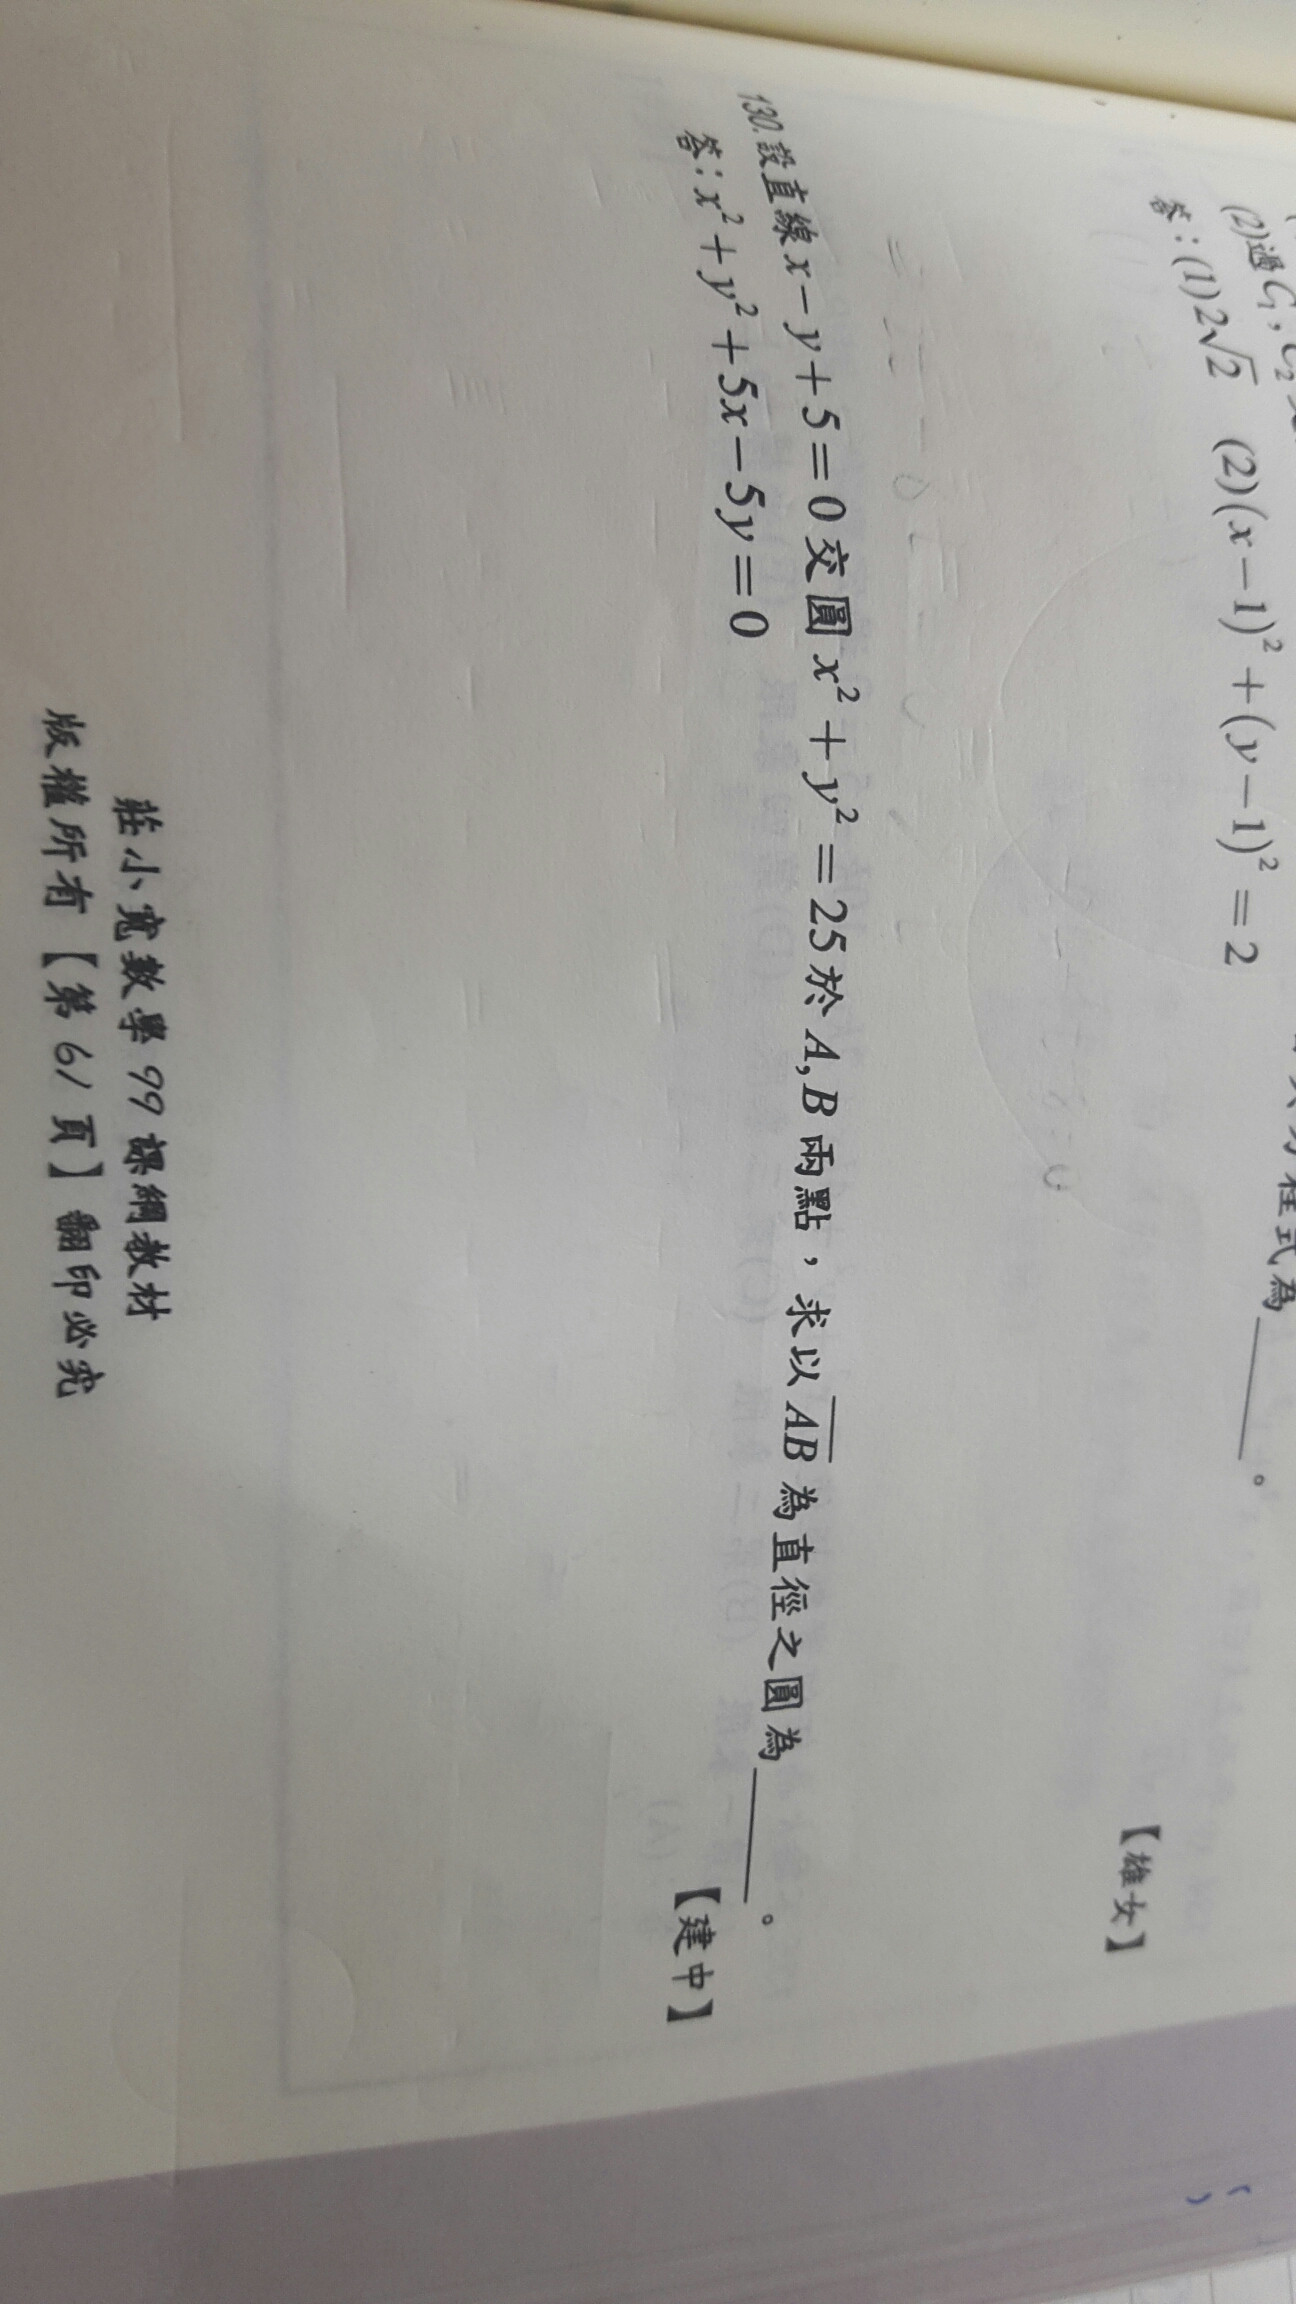 (2)過C₁,C₂
程式為____。
答:(1)2√2 (2)(x−1)²+(y−1)²=2
【雄女】
130.設直線x−y+5=0交圓x²+y²=25於A,B兩點,求以A̅B̅為直徑之圓為____。
答:x²+y²+5x−5y=0
【建中】
莊小寬數學99課綱教材
版權所有【第61頁】翻印必究